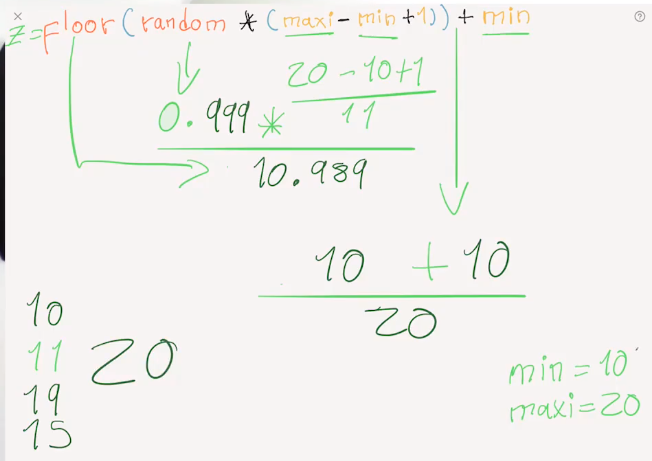 z=Floor(random * (maxi-min+1))+min
20-10+1
0.999 * 11
10.989
10 + 10
20
10
11
20
19
15
min=10
maxi=20